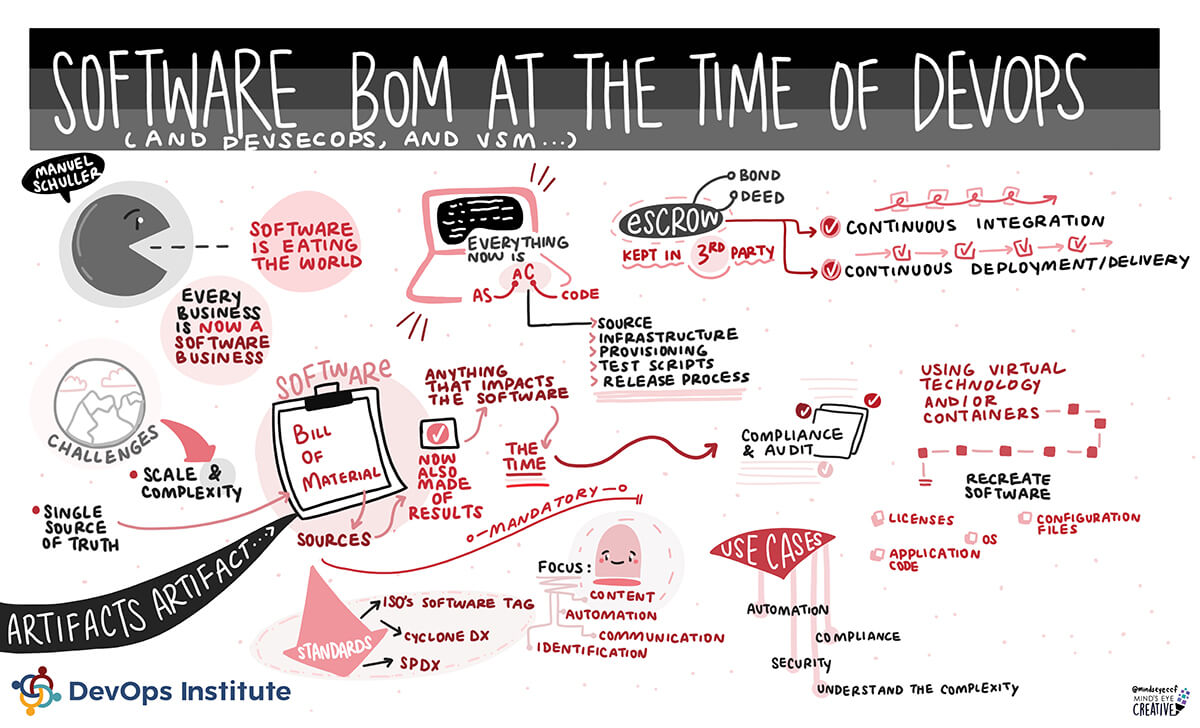 SOFTWARE BOM AT THE TIME OF DEVOPS
(AND DEVSECOPS, AND VSM...)
MANUEL
SCHULLER
SOFTWARE
IS EATING
THE WORLD
EVERY
BUSINESS
IS NOW A
SOFTWARE
BUSINESS
EVERYTHING
NOW IS
AC
AS
CODE
SOURCE
INFRASTRUCTURE
PROVISIONING
TEST SCRIPTS
RELEASE PROCESS
BOND
DEED
ESCROW
KEPT IN 3RD PARTY
CONTINUOUS INTEGRATION
CONTINUOUS DEPLOYMENT/DELIVERY
CHALLENGES
SCALE &
COMPLEXITY
SINGLE
SOURCE
OF TRUTH
SOFTWARE
BILL
OF
MATERIAL
SOURCES
NOW
ALSO
MADE
OF
RESULTS
ANYTHING
THAT IMPACTS
THE SOFTWARE
THE
TIME
COMPLIANCE
& AUDIT
USING VIRTUAL
TECHNOLOGY
AND/OR
CONTAINERS
RECREATE
SOFTWARE
LICENSES
OS
CONFIGURATION
FILES
APPLICATION
CODE
ARTIFACTS ARTIFACT...
MANDATORY
STANDARDS
ISO'S SOFTWARE TAG
CYCLONE DX
SPDX
FOCUS:
CONTENT
AUTOMATION
COMMUNICATION
IDENTIFICATION
USE CASES
AUTOMATION
COMPLIANCE
SECURITY
UNDERSTAND THE COMPLEXITY
DevOps Institute
@mindseyeccf
MIND'S EYE
CREATIVE